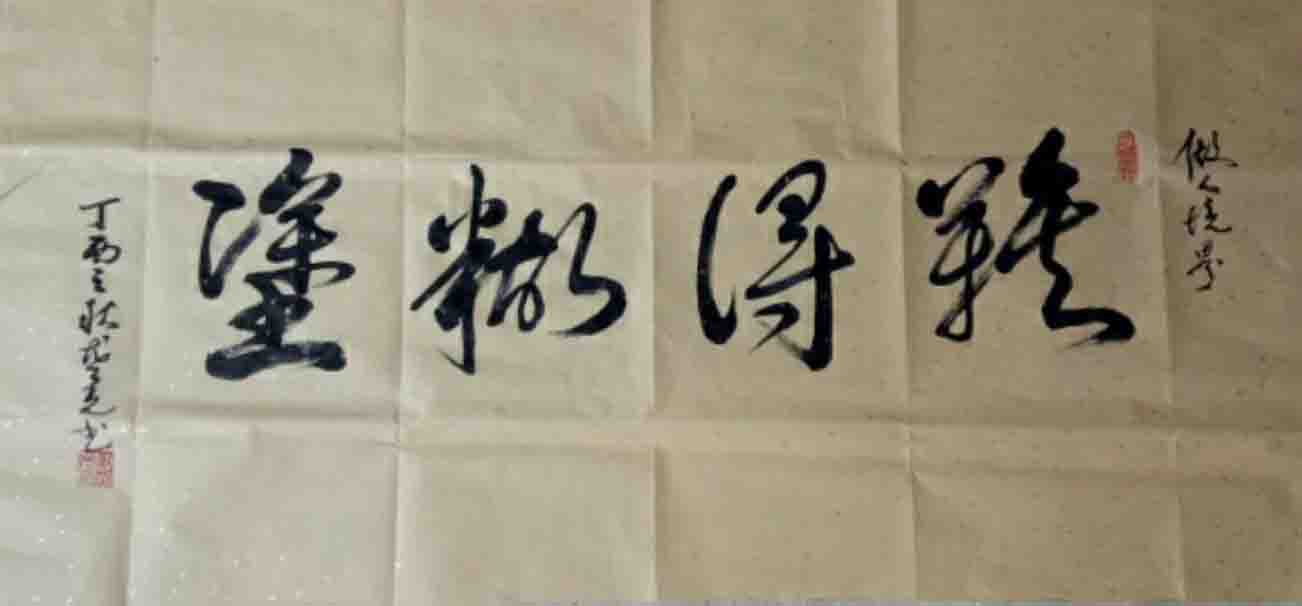 做人境界
難得糊塗
丁酉之秋 書